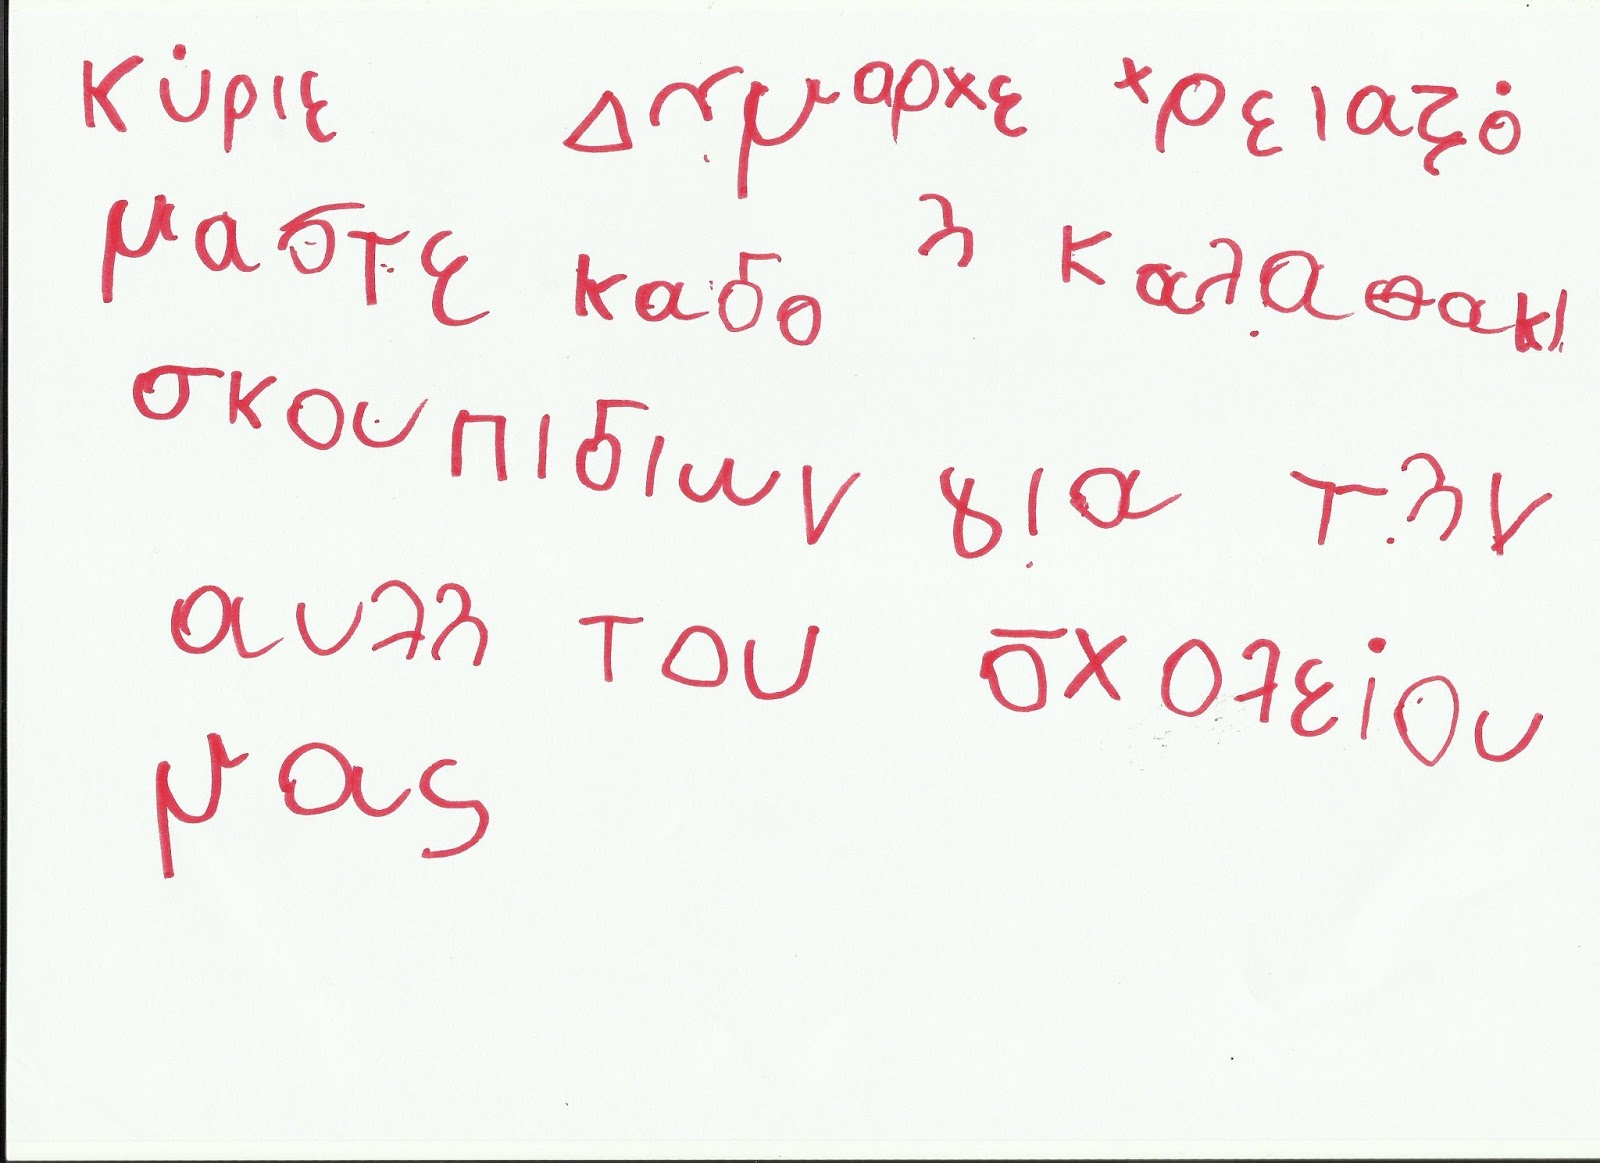 Κύριε Δημαρχε χρειαζό
μαστε καδο η καλαθακι
σκουπιδιων για την
αυλη του σχολείου
μας